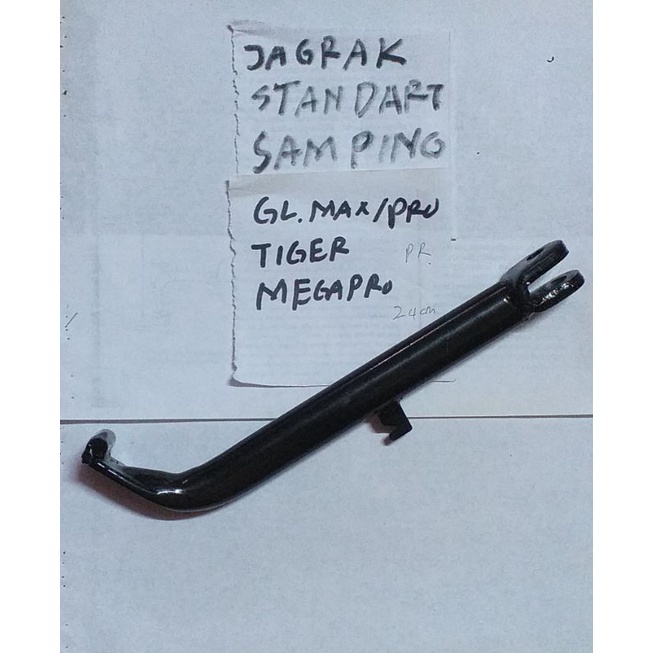 JAGRAK
STANDART
SAMPING
GL.MAX/PRO
TIGER PR.
MEGAPRO
24cm